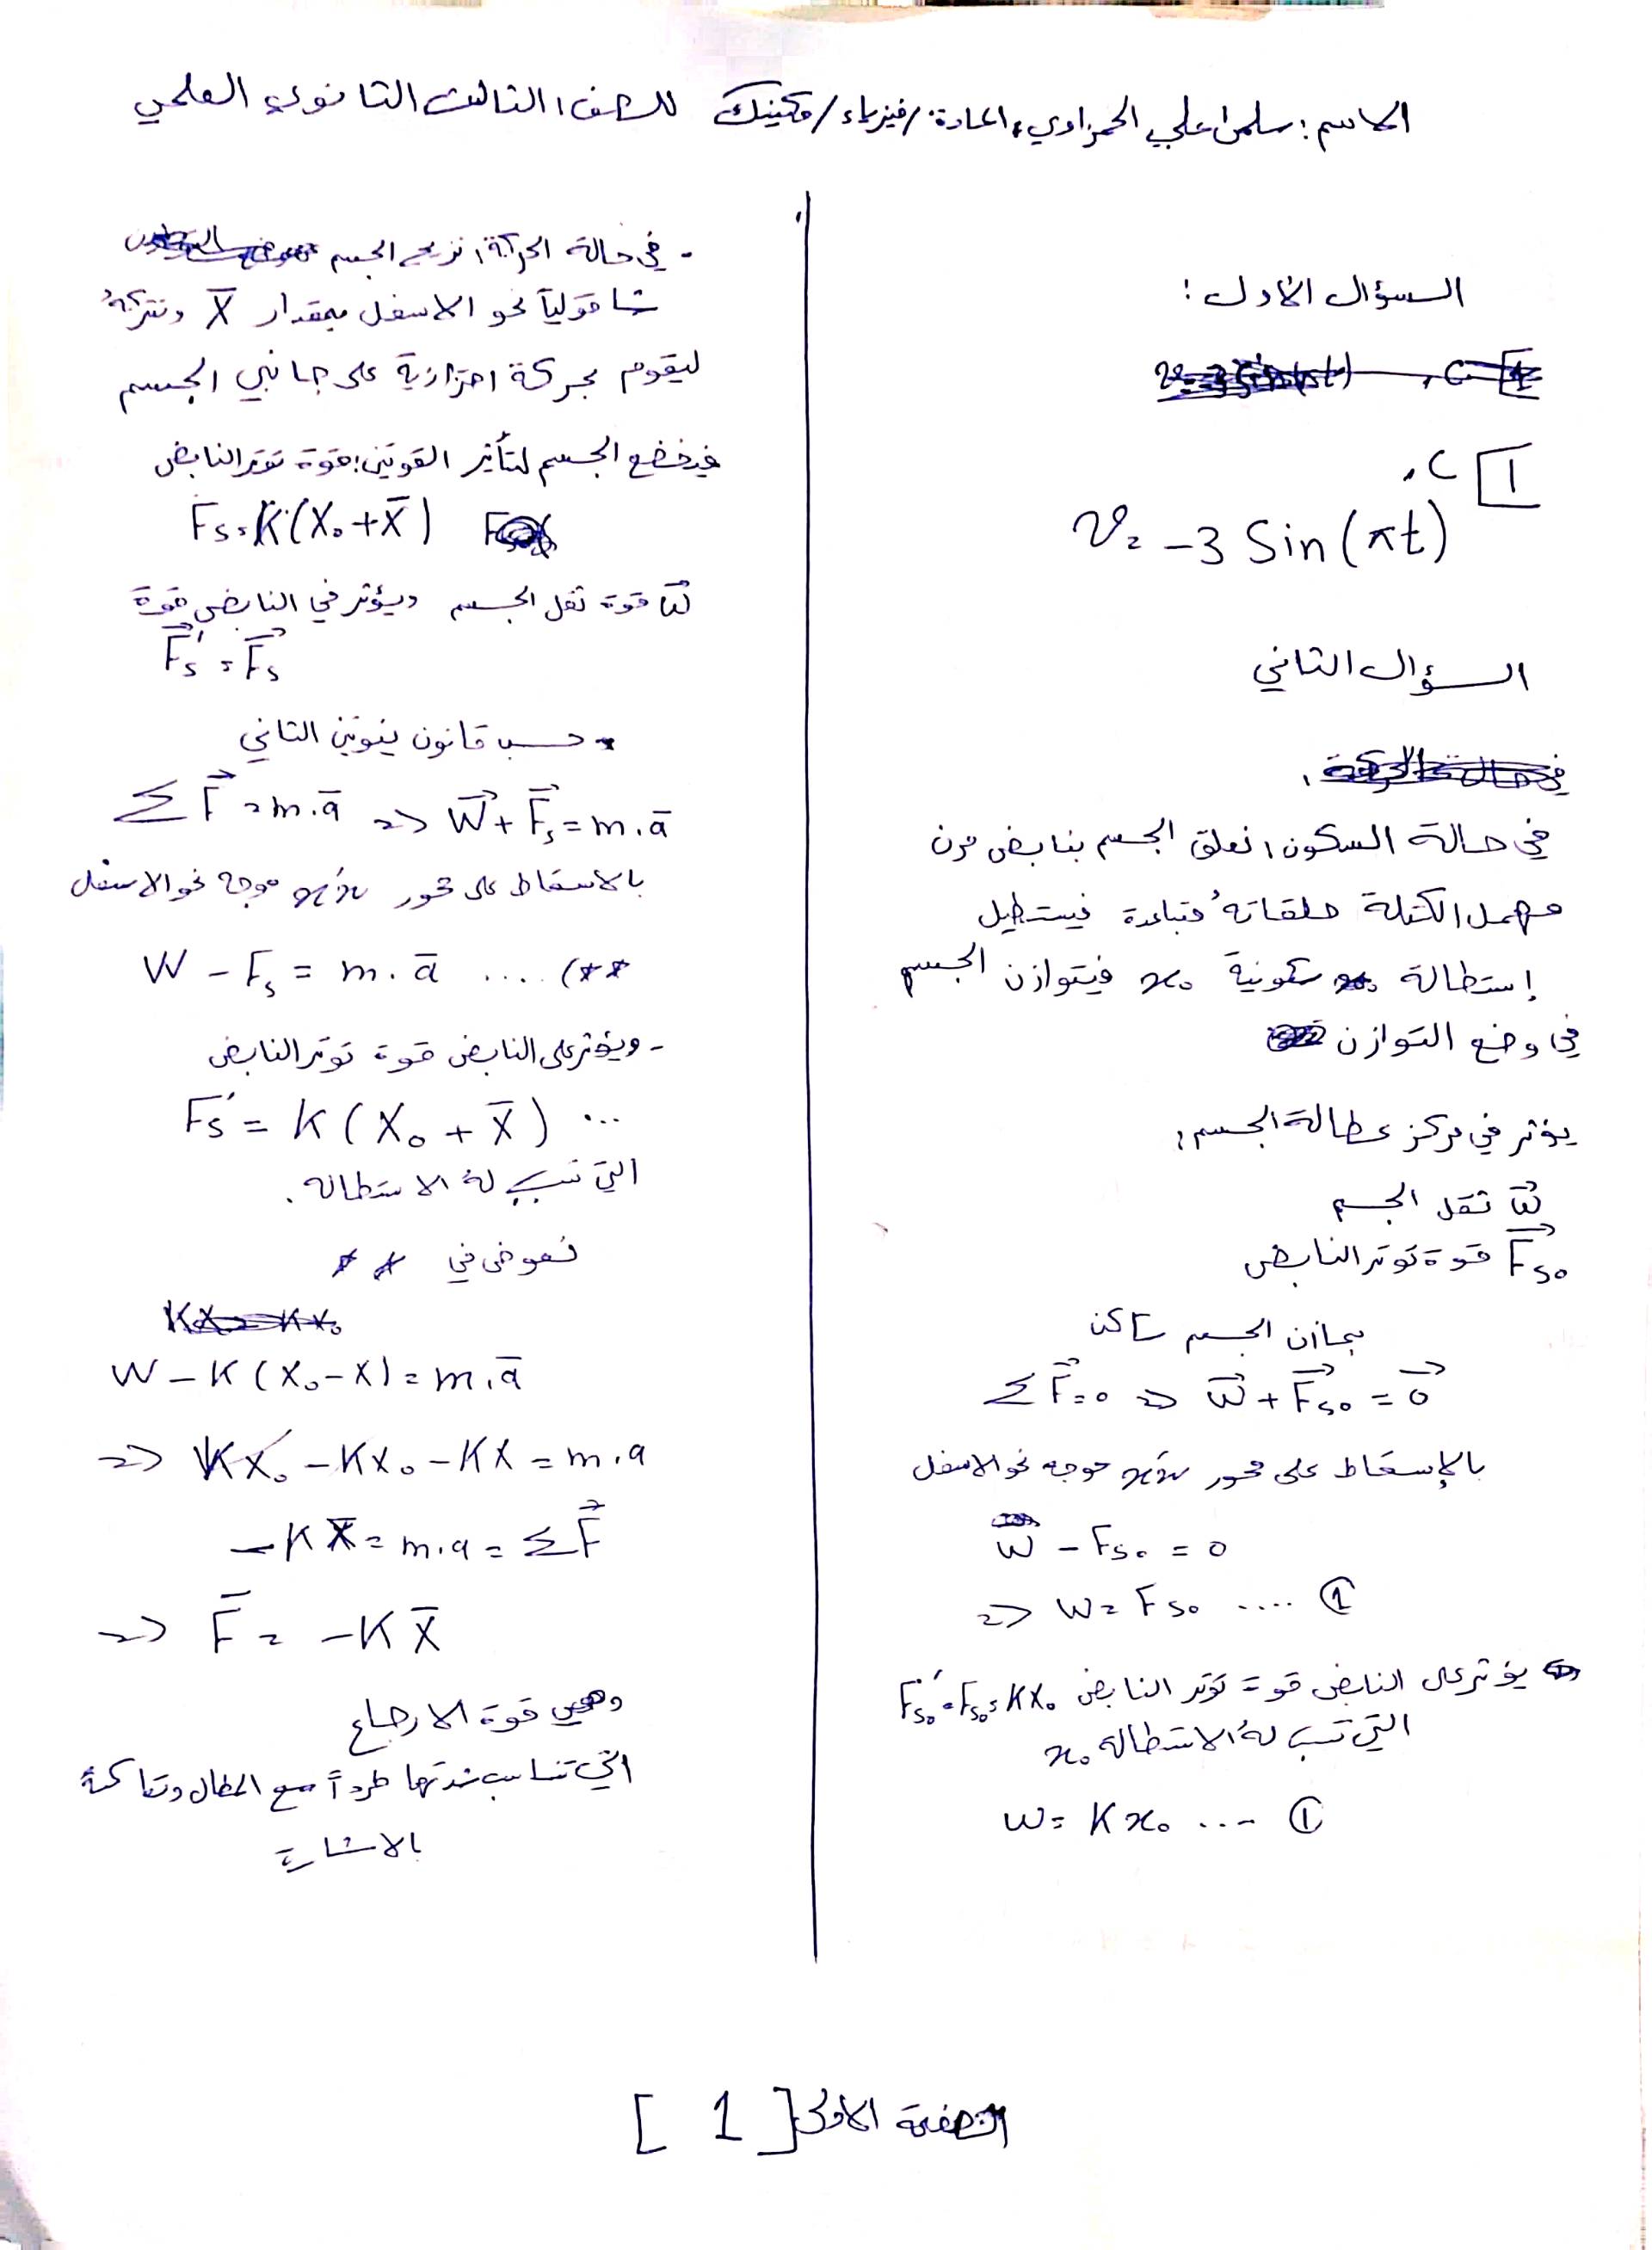 الاسم: سلمى علي الحمزاوي، المادة: /فيزياء/ مكينيك للصف الثالث الثانوي العلمي
السؤال الأول:
1 C،
v = -3 Sin(πt)
السؤال الثاني
في حالة السكون، نعلق الجسم بنابض مرن
مهمل الكتلة حلقاته متباعدة فيستطيل
إستطالة سكونية x₀ فيتوازن الجسم
في وضع التوازن
يؤثر في مركز عطالة الجسم:
W⃗ ثقل الجسم
F⃗s₀ قوة توتر النابض
بما ان الجسم ساكن
Σ F⃗ = 0 => W⃗ + F⃗s₀ = 0⃗
بالإسقاط على محور x'x موجه نحو الاسفل
W - Fs₀ = 0
=> W = Fs₀ .... ①
يؤثر على النابض قوة توتر النابض F's₀ = Fs₀ = Kx₀
التي تسبب له الاستطالة x₀
W = Kx₀ .... ①
- في حالة الحركة، نزيح الجسم
شاقولياً نحو الاسفل بمقدار X̄ ونتركه
ليقوم بحركة اهتزازية على جانبي الجسم
فيخضع الجسم لتأثير القوتين: قوة توتر النابض
Fs = K(X₀ + X̄)
W⃗ قوة ثقل الجسم ويؤثر في النابض قوة
F⃗'s = F⃗s
حسب قانون نيوتن الثاني
Σ F⃗ = m.ā => W⃗ + F⃗s = m.ā
بالاسقاط على محور x'x موجه نحو الاسفل
W - Fs = m.ā .... (**
- ويؤثر على النابض قوة توتر النابض
Fs' = K(X₀ + X̄) ...
التي تسبب له الاستطالة.
نعوض في **
W - K(X₀ - X) = m.ā
=> KX₀ - KX₀ - KX = m.a
-KX̄ = m.a = ΣF⃗
=> F̄ = -KX̄
وهي قوة الارجاع
التي تتناسب شدتها طرداً مع المطال وتعاكسه
بالاشارة
الصفحة الاولى [1]